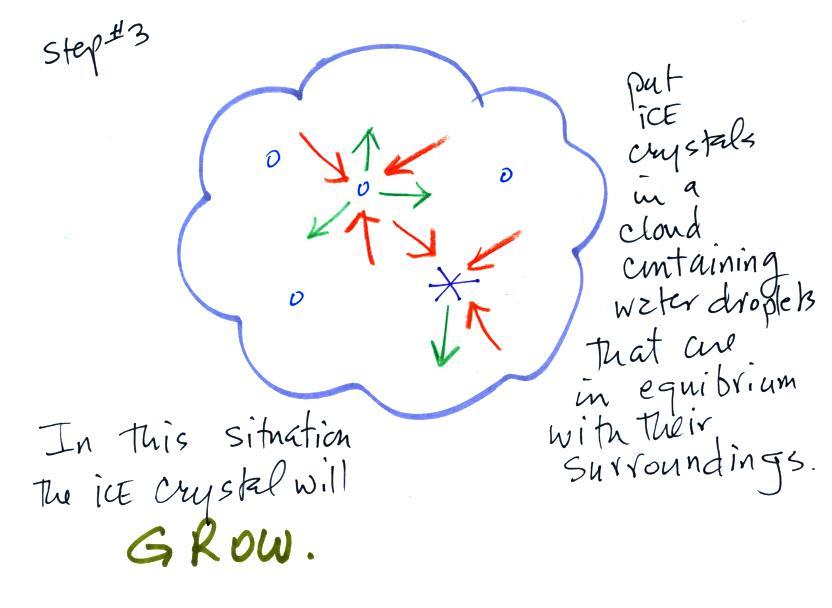 Step #3
put
ICE
crystals
in a
cloud
containing
water droplets
that are
in equibrium
with their
surroundings.
In this situation
the ICE crystal will
GROW.